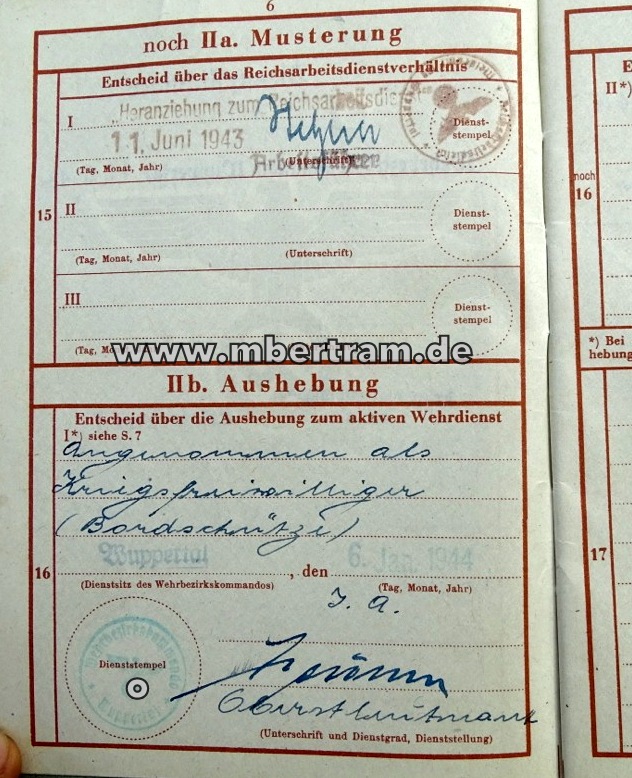 6
noch IIa. Musterung
Entscheid über das Reichsarbeitsdienstverhältnis
I
„Heranziehung zum Reichsarbeitsdienst
11. Juni 1943
Dienst-
stempel
Arbeitsführer
(Tag, Monat, Jahr) (Unterschrift)
15
II
Dienst-
stempel
(Tag, Monat, Jahr) (Unterschrift)
III
Dienst-
stempel
(Tag, Mo
www.mbertram.de
IIb. Aushebung
Entscheid über die Aushebung zum aktiven Wehrdienst
I*) siehe S. 7
Angenommen als
Kriegsfreiwilliger
(Bordschütze)
Wuppertal 6. Jan. 1944
16 , den
(Dienstsitz des Wehrbezirkskommandos) (Tag, Monat, Jahr)
I. A.
Wehrbezirkskommando
Wuppertal
Dienststempel
Oberstleutnant
(Unterschrift und Dienstgrad, Dienststellung)
E
II*)
noch
16
*) Bei
hebung
17